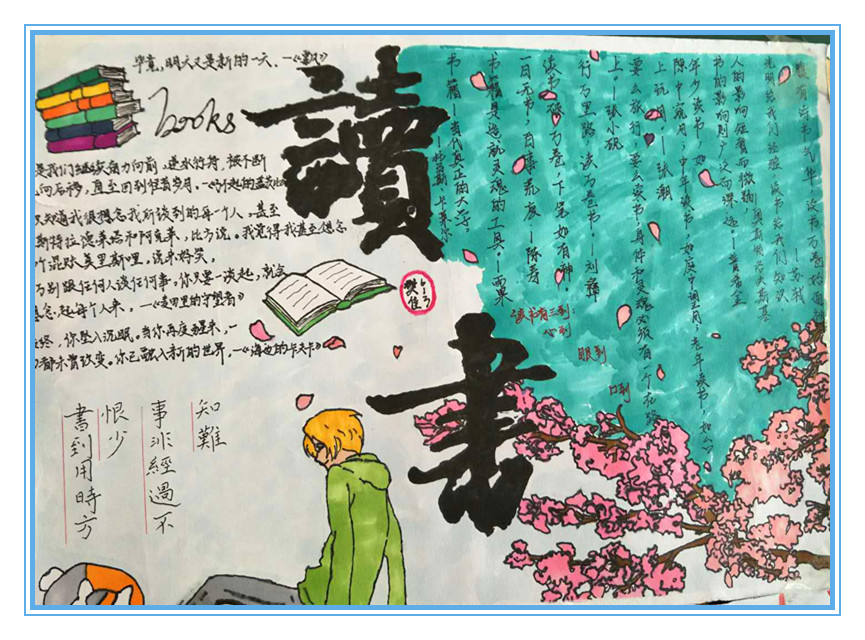 毕竟,明天又是新的一天.—《飘》
books
讀書
是我们继续奋力向前,逆水行舟,被不断
向后推,直至回到往昔岁月.—《了不起的盖茨比
只知道我很想念我所谈到的每一个人。甚至
斯特拉德莱塔和阿克莱,比方说。我觉得我甚至想念
个混账莫里斯哩,说来好笑,
万别跟任何人谈任何事。你只要一谈起,就会
想念起每个人来。—《麦田里的守望者》
终,你坠入沉眠。当你再度醒来,一
都未曾改变。你已融入新的世界,—《海边的卡夫卡》
腹有诗书气华,读书万卷始通神
—苏轼
光明给我们经验,读书给我们知识,
—奥斯特洛夫斯基
人的影响短暂而微弱,
书的影响则广泛而深远—普希金
年少读书,如
隙中窥月,中年读书,如庭中望月,老年读书,如台
上玩月。—张潮
要么旅行,要么读书,身体和灵魂必须有一个在路
上。—张小砚
行万里路,读万卷书。—刘彝
读书破万卷,下笔如有神
一日无书,百事荒废—陈寿
书籍是造就灵魂的工具。—雨果
书籍—当代真正的大学。
—托马斯·卡莱尔
读书有三到:
心到
眼到
口到
書到用時方
恨少
事非經過不
知難